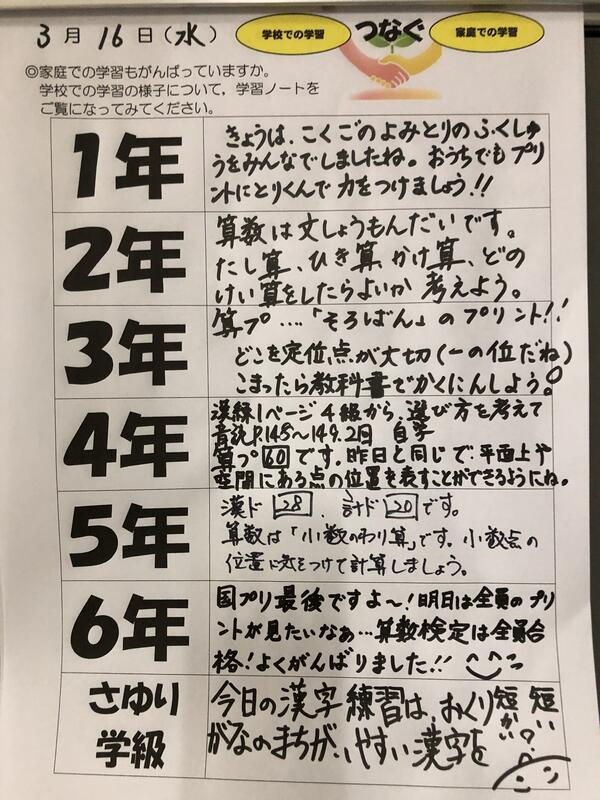 3月16日(水)
学校での学習
つなぐ
家庭での学習
◎家庭での学習もがんばっていますか。
学校での学習の様子について,学習ノートを
ご覧になってみてください。
1年
きょうは、こくごのよみとりのふくしゅ
うをみんなでしましたね。おうちでもプリ
ントにとりくんで力をつけましょう!!
2年
算数は文しょうもんだいです。
たし算、ひき算、かけ算、どの
けい算をしたらよいか 考えよう。
3年
算プ…「そろばん」のプリント!!
どこを定位点が大切(一の位だね)
こまったら教科書でかくにんしよう。
4年
漢練1ページ4級から、選び方を考えて
音読P.148〜149.2回 自学
算プ60です。昨日と同じで、平面上や
空間にある点の位置を表すことができるようにね。
5年
漢ド 28 、計ド 20 です。
算数は「小数のわり算」です。小数点の
位置に気をつけて計算しましょう。
6年
国プリ最後ですよ〜!明日は全員のプリ
ントが見たいなぁ…算数検定は全員合
格!よくがんばりました!!
さゆり
学級
今日の漢字練習は、おくり
がなのまちがいやすい漢字を
短い
短かい?